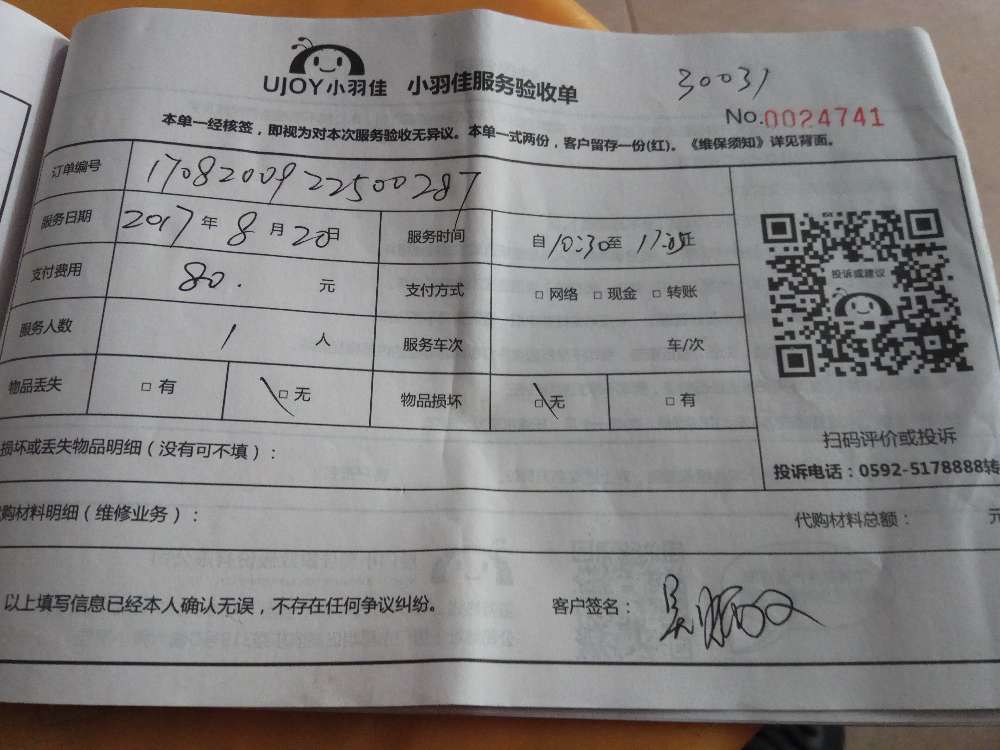 UJOY小羽佳 小羽佳服务验收单
30031
No.0024741
本单一经核签，即视为对本次服务验收无异议。本单一式两份，客户留存一份(红)。《维保须知》详见背面。
订单编号 1708200922500287
服务日期 2017年8月20日 服务时间 自10:30至17:05止
支付费用 80. 元 支付方式 □ 网络 □ 现金 □ 转账
服务人数 1 人 服务车次 车/次
物品丢失 □ 有 □ 无 物品损坏 □ 无 □ 有
投诉或建议
扫码评价或投诉
投诉电话：0592-5178888转
损坏或丢失物品明细（没有可不填）：
购材料明细（维修业务）： 代购材料总额： 元
以上填写信息已经本人确认无误，不存在任何争议纠纷。 客户签名：